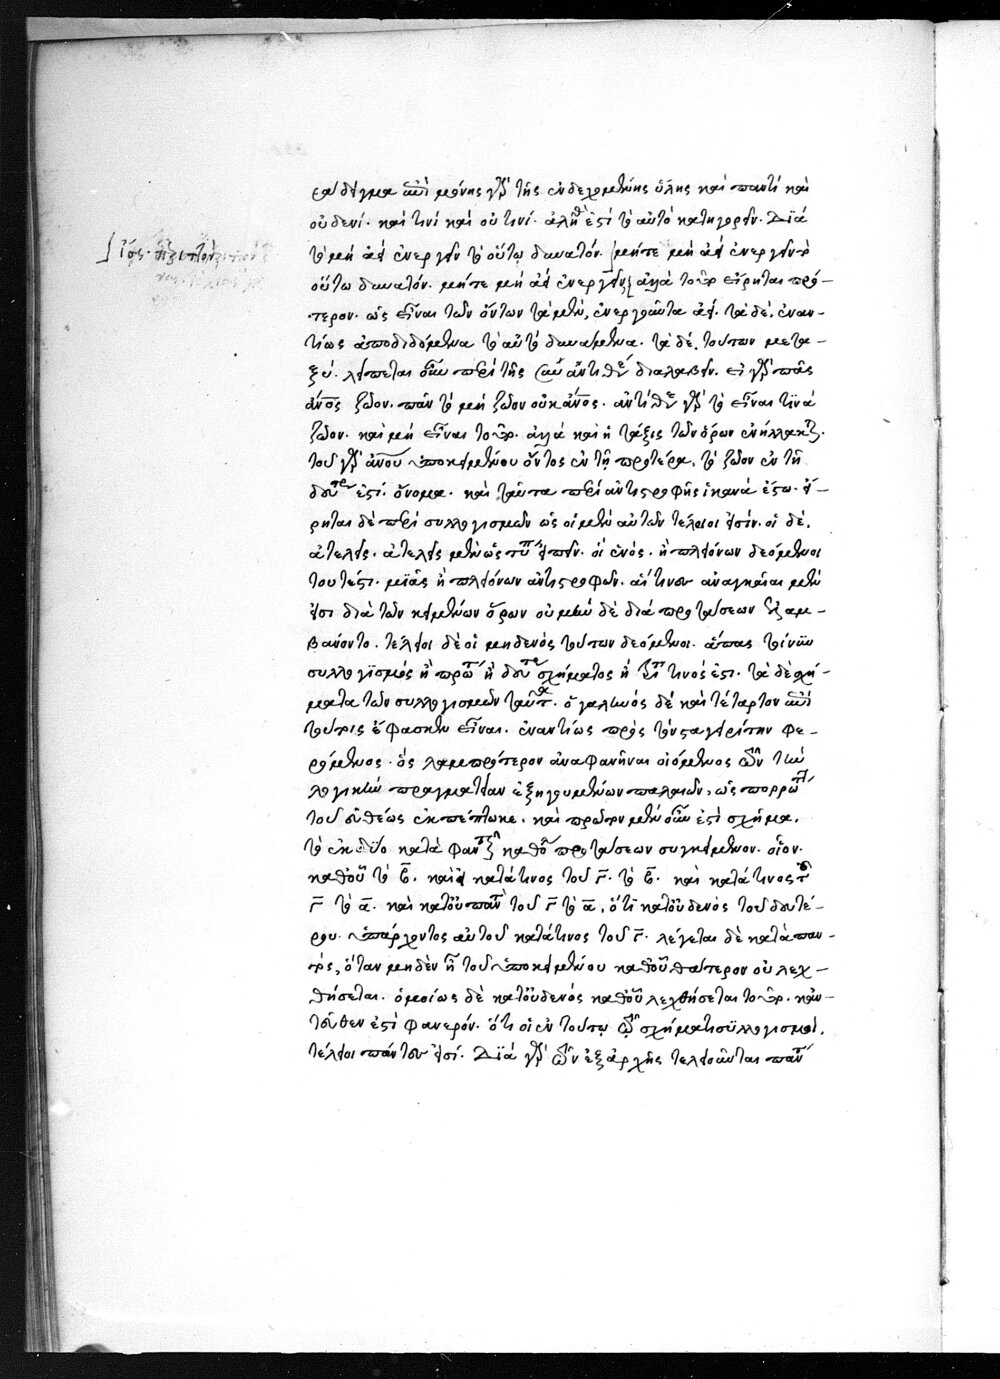 μόνης γὰρ τῆς ἐνδεχομένης ὕλης καὶ παντὶ καὶ
οὐδενί. καὶ τινὶ καὶ οὐ τινί. ἀληθὲς ἐστὶ τὸ αὐτὸ κατηγορεῖν. Διὰ
τὸ μὴ ἀεὶ ἐνεργεῖν τὸ οὕτω δυνατόν. μήτε μὴ ἀεὶ ἐνεργεῖν τὸ
οὕτω δυνατόν. μήτε μὴ ἀεὶ ἐνεργεῖν ἀλλὰ εἴρηται πρό–
τερον. ὡς εἶναι τῶν ὄντων τὰ μὲν, ἐνεργοῦντα ἀεί. τὰ δέ, ἐναν–
τίως ἀποδιδόμενα τὰ δέ, τούτων μετα–
ξύ. λείπεται οὖν περὶ τῆς σὺν ἀντιθέσει διαλαβεῖν. εἰ γὰρ πᾶς
ἄνος ζῶον. πᾶν τὸ μὴ ζῶον οὐκ ἄνος. ἀντίθεσις γὰρ τὸ εἶναι τινὰ
ζῶον. καὶ μὴ εἶναι ἀλλὰ καὶ ἡ τάξις τῶν ὅρων ἐνήλλακται.
τοῦ γὰρ ἀνου ὑποκειμένου ὄντος ἐν τῇ προτέρα, τὸ ζῶον ἐν τῇ
δευτέρα ἐστὶ. ὄνομα. καὶ ταῦτα περὶ ἀντιστροφῆς ἱκανὰ ἔστω. εἴ–
ρηται δὲ περὶ συλλογισμῶν ὡς οἱ μὲν αὐτῶν τέλειοι εἰσίν. οἱ δὲ,
ἀτελεῖς. ἀτελεῖς μὲν ὡς εἰπεῖν. οἱ ἑνὸς. ἢ πλειόνων δεόμενοι
τουτέστι. μιᾶς ἢ πλειόνων ἀντιστροφῶν. αἵτινες ἀναγκαῖαι μὲν
εἰσι διὰ τῶν κειμένων ὅρων οὐ μὴν δὲ διὰ προτάσεων ἐλαμ–
βάνοντο. τέλειοι δὲ οἱ μηδενὸς τούτων δεόμενοι. ἅπας τοίνυν
συλλογισμὸς ἢ πρώτου ἢ δευτέρου σχήματος ἢ τρίτου τινός ἐστι. τὰ δὲ σχή–
ματα τῶν συλλογισμῶν ταῦτα. ὁ γαληνὸς δὲ καὶ τέταρτον ἐπὶ
τούτοις ἔφασκεν εἶναι. ἐναντίως πρὸς τὸν σταγειρίτην φε–
ρόμενος. ὃς λαμπρότερον ἀναφανῆναι οἰόμενος τῶν τὴν
λογικὴν πραγματείαν ἐξηγουμένων παλαιῶν, ὡς πορρωτάτω
τοῦ εὐθέως ἐκπέπτωκε. καὶ πρῶτον μὲν οὖν ἐστὶ σχῆμα.
τὸ ἐκ δύο καταφατικῶν καθόλου προτάσεων συγκείμενον. οἷον.
καθόλου τὸ β̅. καὶ κατά τινος τοῦ γ̅. τὸ β̅. καὶ κατά τινος τοῦ
γ̅ τὸ α̅. καὶ κατὰ παντὸς τοῦ γ̅ τὸ α̅, ὅτι κατ' οὐδενὸς τοῦ δευτέ–
ρου. ὑπάρχοντος αὐτοῦ κατά τινος τοῦ γ̅. λέγεται δὲ κατὰ παν–
τὸς, ὅταν μηδὲν ἦ τοῦ ὑποκειμένου καθ' οὗ θάτερον οὐ λεχ–
θήσεται. ὁμοίως δὲ κατ' οὐδενὸς καθ' οὗ λεχθήσεται κἀν–
τεῦθεν ἐστὶ φανερόν. ὅτι οἱ ἐν τούτῳ τῷ σχήματι συλλογισμοί,
τέλειοι πάντες εἰσί. Διὰ γὰρ τῶν ἐξ ἀρχῆς τελειοῦνται πάντες